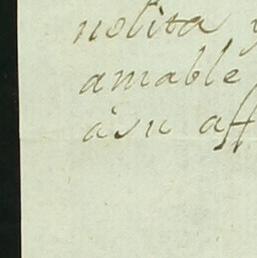 nolita y
amable
à su aff